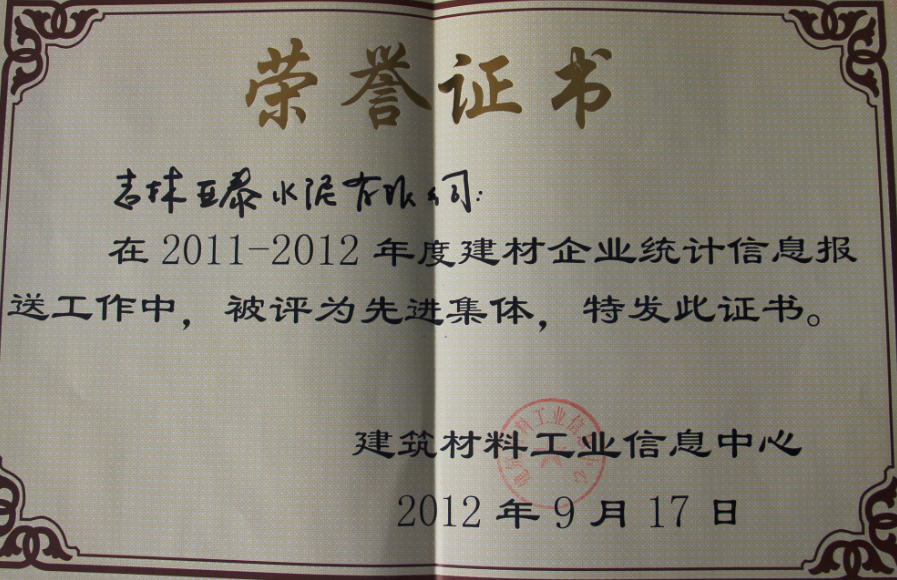 荣誉证书
吉林亚泰水泥有限公司:
在2011-2012年度建材企业统计信息报
送工作中，被评为先进集体，特发此证书。
建筑材料工业信息中心
建筑材料工业信息中心
2012年9月17日